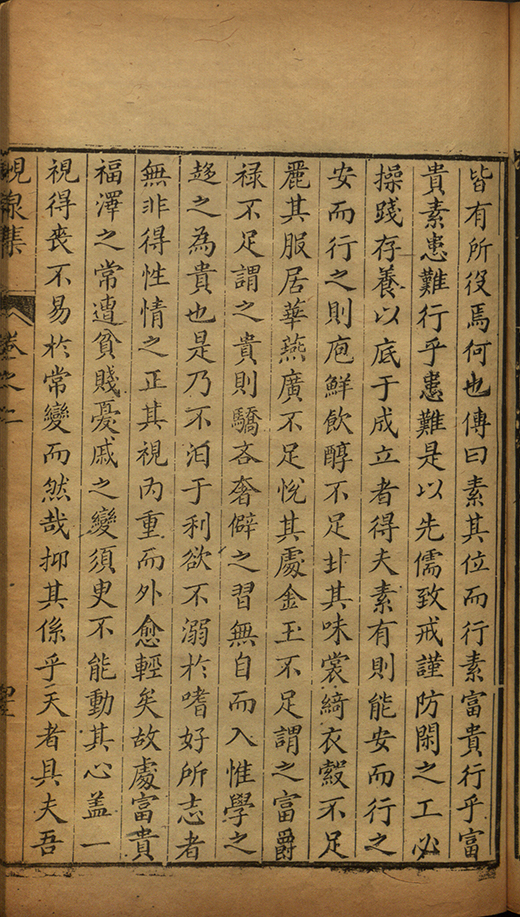 皆有所役焉何也傳曰素其位而行素富貴行乎富
貴素患難行乎患難是以先儒致戒謹防閑之工必
操踐存養以底于成立者得夫素有則能安而行之
安而行之則庖鮮飲醇不足甘其味裳綺衣縠不足
麗其服居華燕廣不足悅其處金玉不足謂之富爵
禄不足謂之貴則驕吝奢僻之習無自而入惟學之
趍之為貴也是乃不汩于利欲不溺於嗜好所志者
無非得性情之正其視内重而外愈輕矣故處富貴
福澤之常遭貧賤憂戚之變須臾不能動其心盖一
視得喪不易於常變而然哉抑其係乎天者具夫吾
集 卷之